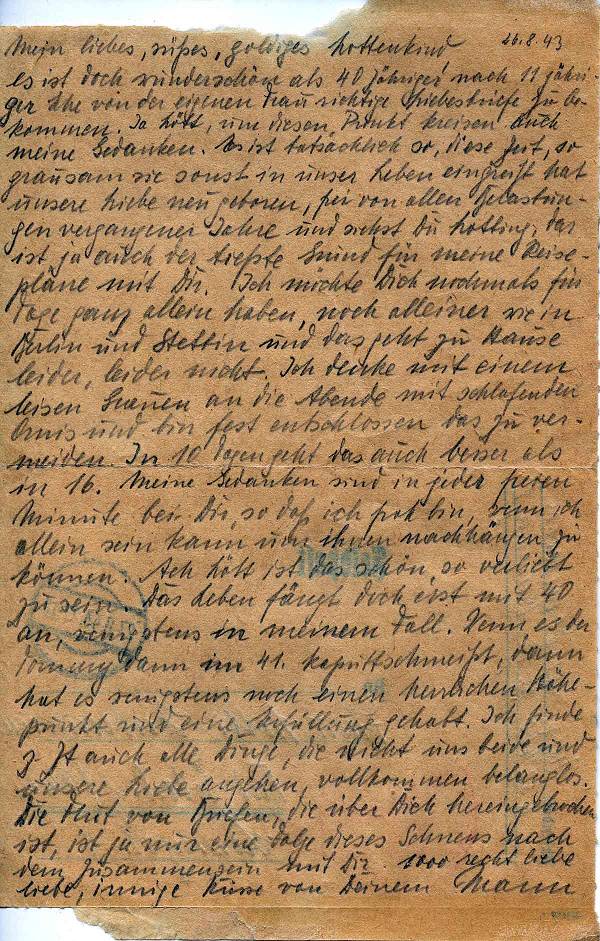 26.8.43
Mein liebes, süßes, goldiges Lottenkind,
es ist doch wunderschön als 40 jähriger nach 11 jähri-
ger Ehe von der eigenen Frau richtige Liebesbriefe zu be-
kommen. Ja Lött, um diesen Punkt kreisen auch
meine Gedanken. Es ist tatsächlich so, diese Zeit, so
grausam sie sonst in unser Leben eingreift hat
unsere Liebe neu geboren, frei von allen Belastun-
gen vergangener Jahre und siehst Du Lotting, das
ist ja auch der tiefste Grund für meine Reise-
pläne mit Dir. Ich möchte Dich nochmals für
Tage ganz allein haben, noch alleiner wie in
Berlin und Stettin und das geht zu Hause
leider, leider nicht. Ich denke mit einem
leisen Grauen an die Abende mit schlafenden
Omis und bin fest entschlossen das zu ver-
meiden. In 10 Tagen geht das auch besser als
in 16. Meine Gedanken sind in jeder freien
Minute bei Dir, so daß ich froh bin, wenn ich
allein sein kann um ihnen nachhängen zu
können. Ach Lött ist das schön, so verliebt
zu sein. Das Leben fängt doch erst mit 40
an, wenigstens in meinem Fall. Wenn es der
Tommy dann im 41. kaputtschmeißt, dann
hat es wenigstens noch einen herrlichen Höhe-
punkt und eine Erfüllung gehabt. Ich finde
z. Zt auch alle Dinge, die nicht uns beide und
unsere Liebe angehen, vollkommen belanglos.
Die Flut von Briefen, die über Dich hereingebrochen
ist, ist ja nur eine Folge dieses Sehnens nach
dem Zusammensein mit Dir. 1000 recht liebe
liebe, innige Küsse von Deinem Mann